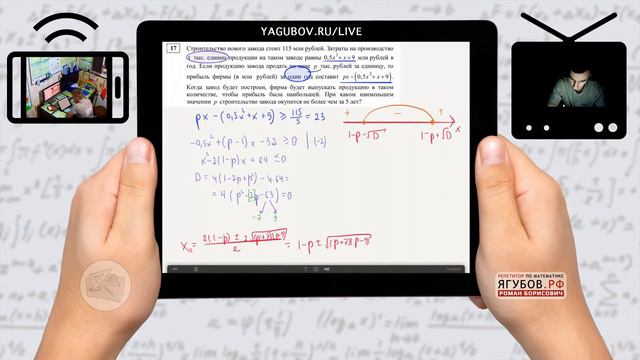 YAGUBOV.RU/LIVE
17 Строительство нового завода стоит 115 млн рублей. Затраты на производство
x тыс. единиц продукции на таком заводе равны 0,5x²+x+9 млн рублей в
год. Если продукцию завода продать по цене p тыс. рублей за единицу, то
прибыль фирмы (в млн рублей) за один год составит px−(0,5x²+x+9).
Когда завод будет построен, фирма будет выпускать продукцию в таком
количестве, чтобы прибыль была наибольшей. При каком наименьшем
значении p строительство завода окупится не более чем за 5 лет?
px − (0,5x² + x + 9) ≥ 115/5 = 23
−0,5x² + (p−1)x − 32 ≥ 0 |·(−2)
x² − 2(1−p)x + 64 ≤ 0
D = 4(1−2p+p²) − 4·64 =
= 4(p²−2p−63) = 0
−7 9
x₁,₂ = 2(1−p) ± 2√(p+7)(p−9) / 2 = 1−p ± √(p+7)(p−9)
+ − +
1−p−√D 1−p+√D x
РЕПЕТИТОР ПО МАТЕМАТИКЕ
ЯГУБОВ.РФ
РОМАН БОРИСОВИЧ